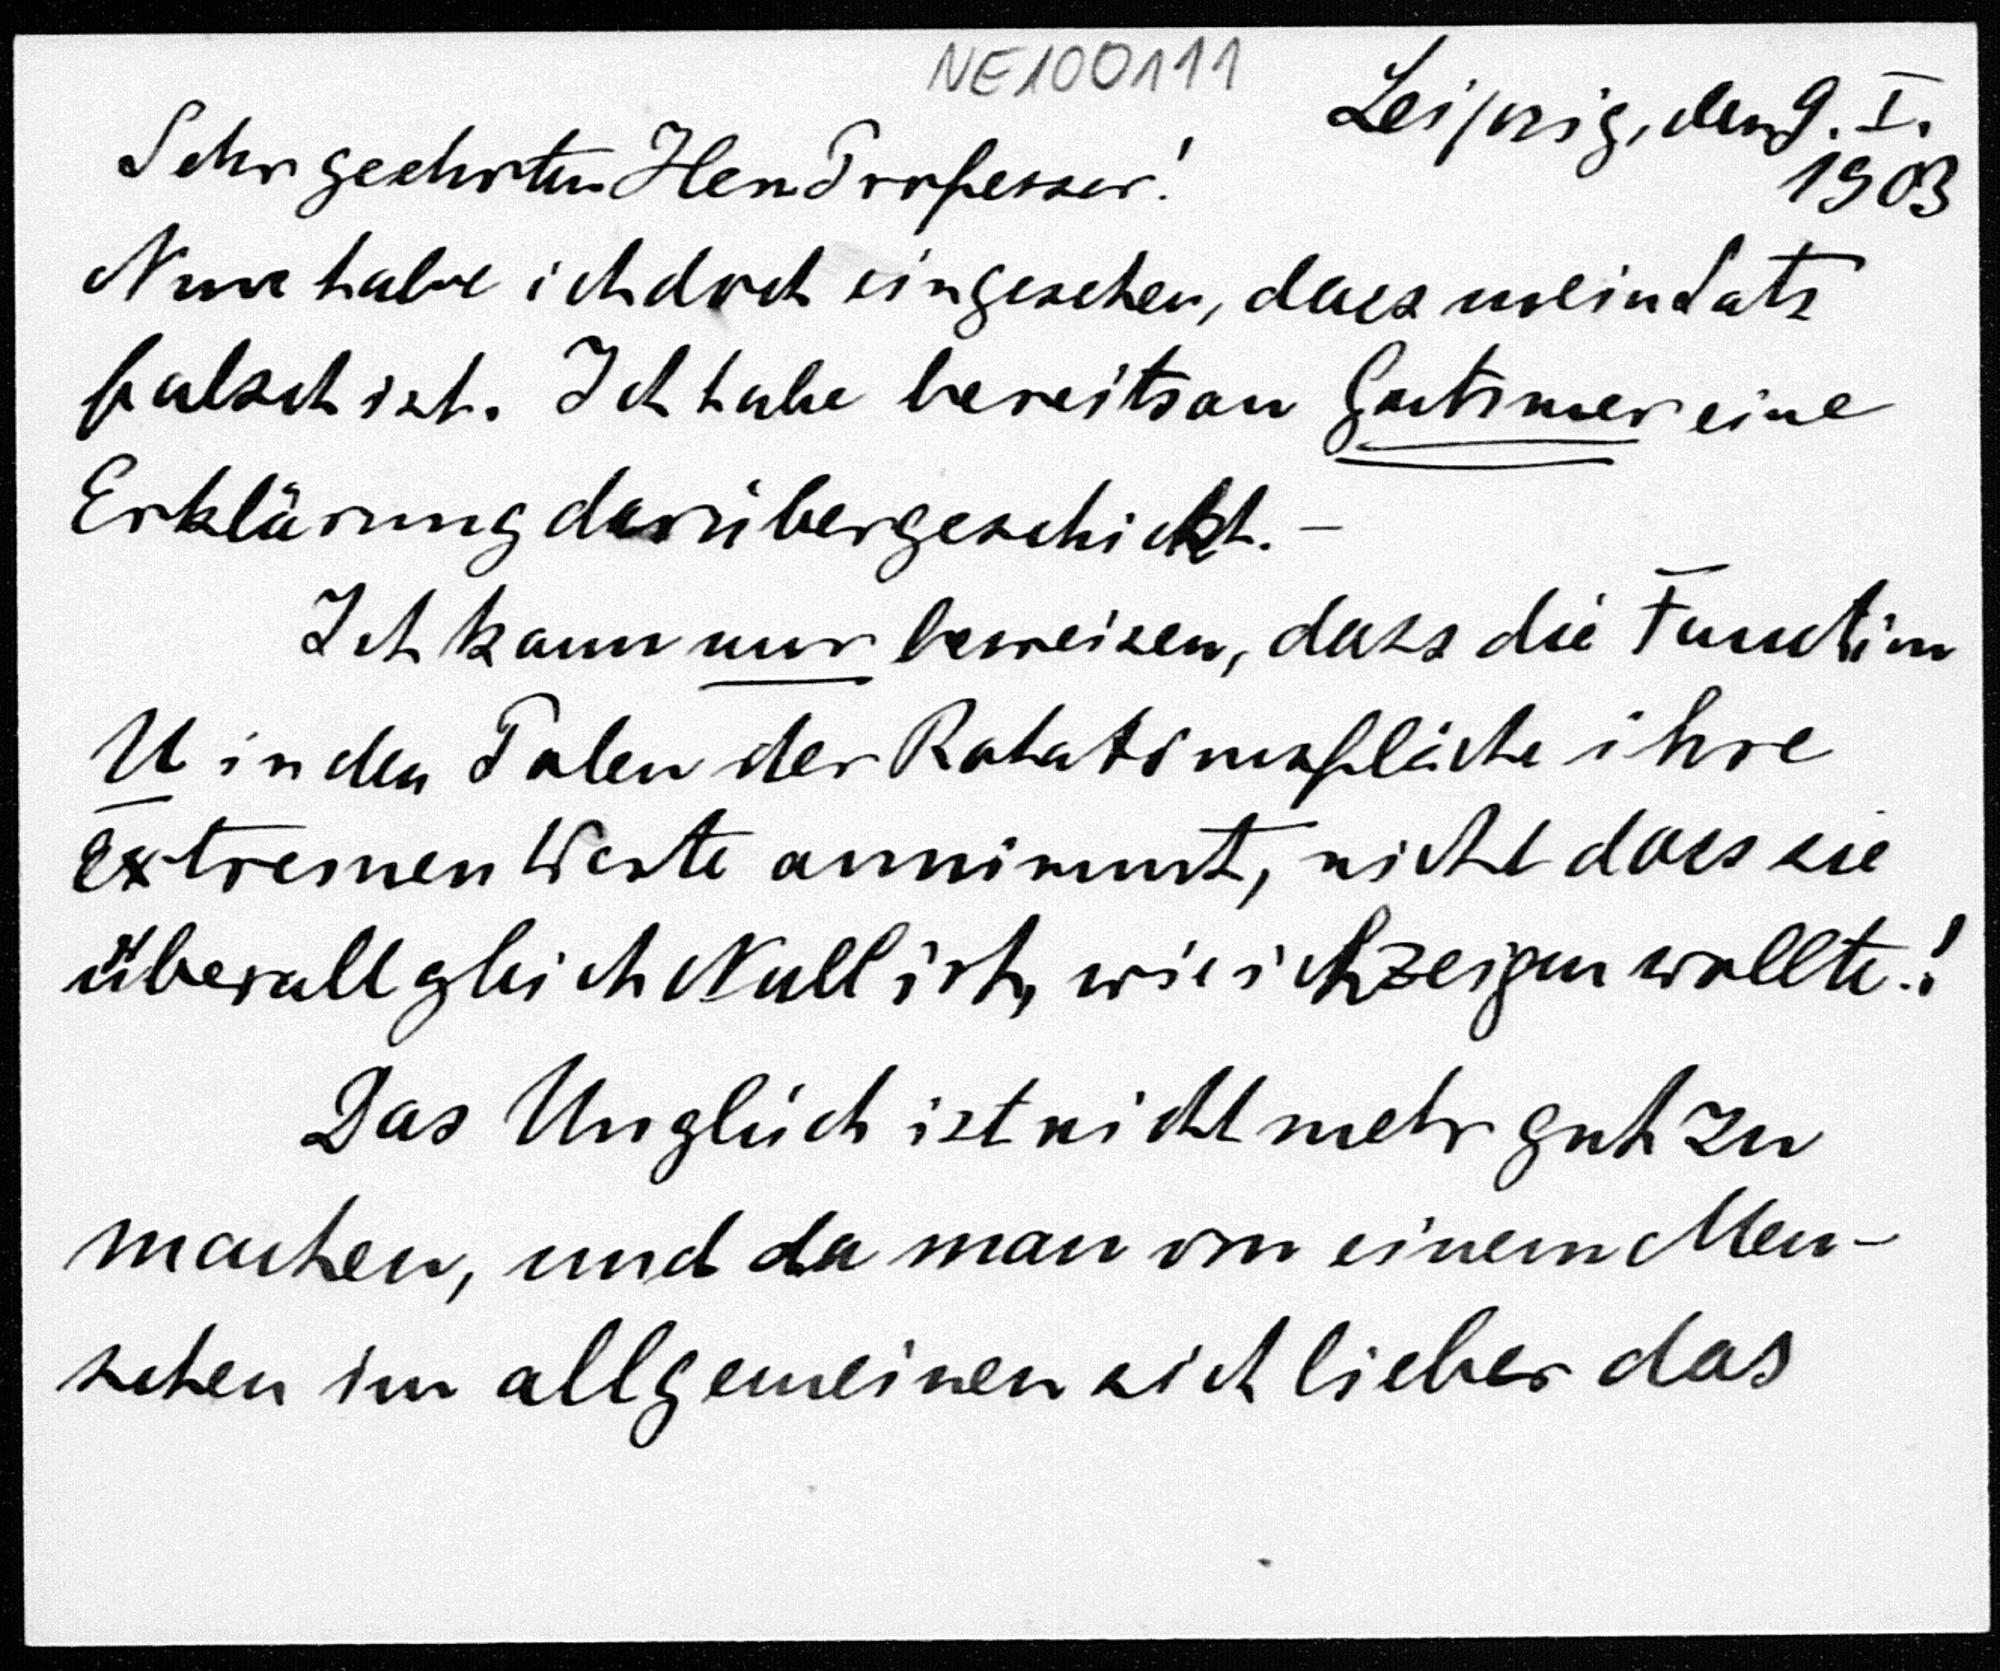 NE100111
Leipzig, den 9. I.
1903
Sehr geehrter Herr Professor!
Nun habe ich doch eingesehen, dass mein Satz
falsch ist. Ich habe bereits an Gutzmer eine
Erklärung darüber geschickt. –
Ich kann nur beweisen, dass die Function
U in den Polen der Rotationsfläche ihre
extremen Werte annimmt, nicht dass sie
überall gleich Null ist, wie ich zeigen wollte.!
Das Unglück ist nicht mehr gut zu
machen, und da man von einem Men-
schen im allgemeinen sich lieber das